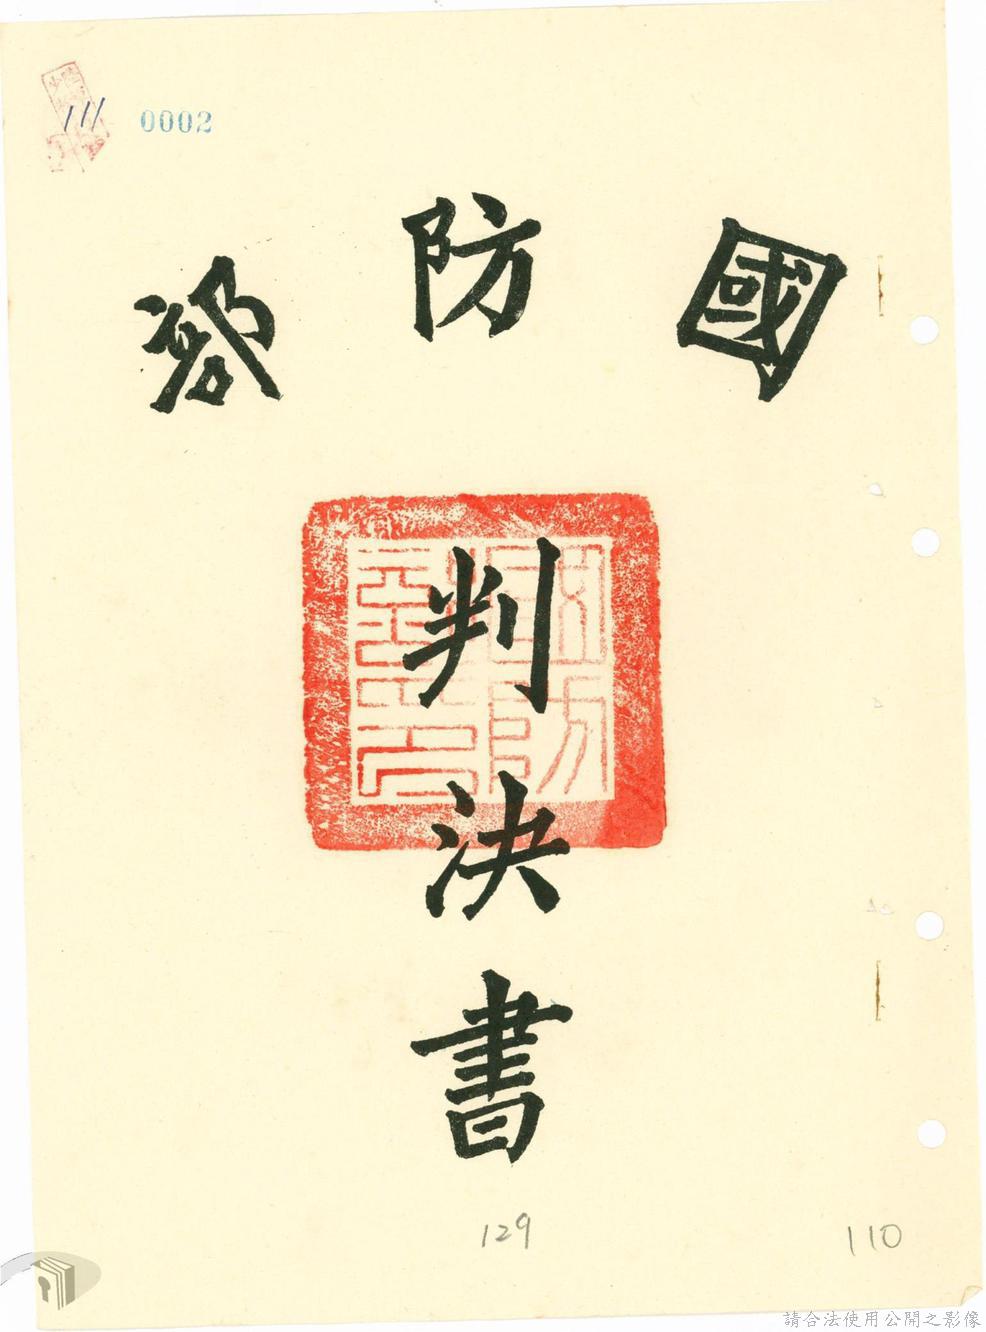 111 0002
國防部
判決書
129
110
請合法使用公開之影像